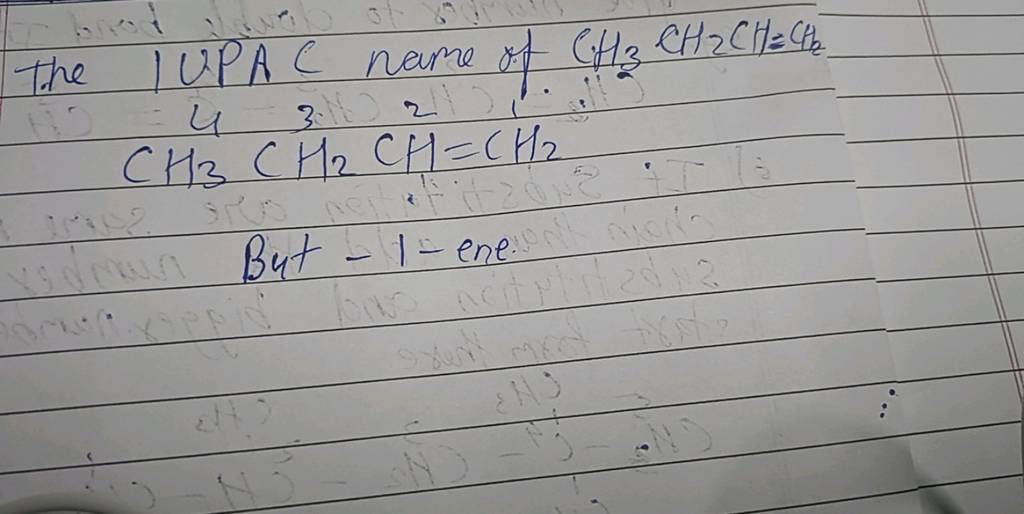 The IUPAC name of CH3 CH2CH=CH2
4 3 2 1
CH3 CH2 CH=CH2
But - 1 - ene.